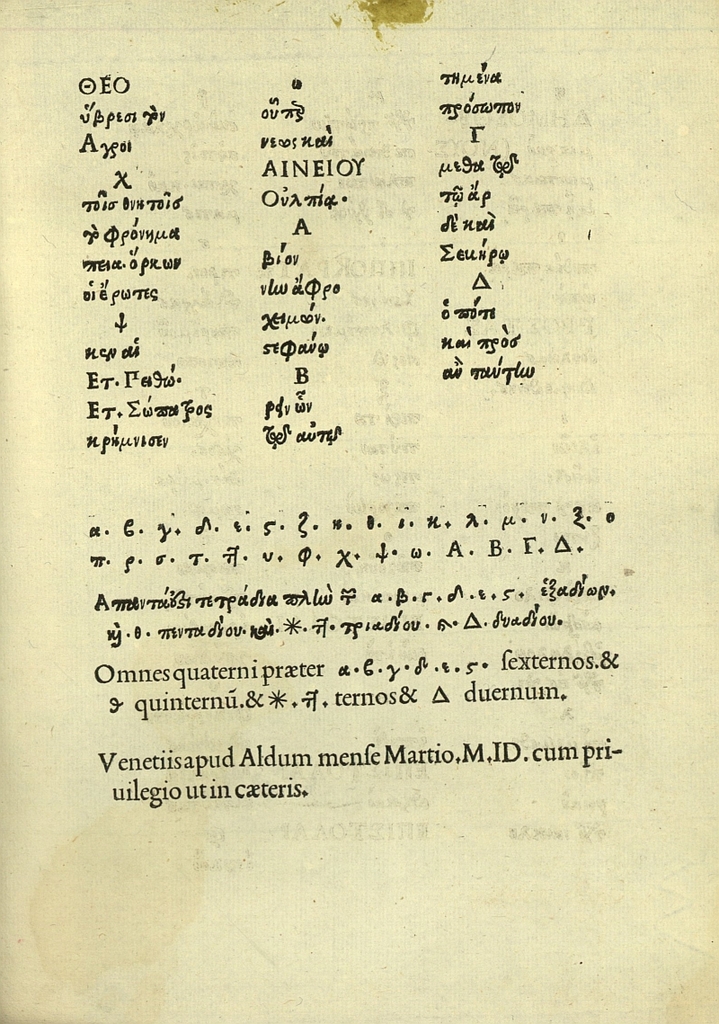 ΘΕΟ
ὕβρεσι τὸν
Αγροι
χ
τοῖσ θνητοῖσ
τὸ φρόνημα
πεια. ὅρκων
οἱ ἔρωτες
ψ
κην αἱ
Ετ. Πειθώ.
Ετ. Σώπατρος
κρήμνισεν
ω
νεως καὶ
ΑΙΝΕΙΟΥ
Οὐλπία.
Α
βίον
νίω ἀφρο
χειμών.
ϛεφανω
Β
τημένα
πρόσωπον
Γ
μεθα
τῷ ἀρ
δὲ καὶ
Σεκήρῳ
Δ
ὁ πότε
καὶ πρὸσ
αὖ ταύτίω
α. β. γ. δ. ε. ς. ζ. η. θ. ι. κ. λ. μ. ν. ξ. ο
π. ρ. σ. τ. υ. φ. χ. ψ. ω. Α. Β. Γ. Δ.
Απαντα τετράδια πλίω α. β. γ. δ. ε. ς. ἑξαδίων.
θ. πενταδίου. καὶ. ✳. τριαδίου. Δ. δυαδίου.
Omnes quaterni præter α. β. γ. δ. ε. ς. ſexternos. &
θ quinternū. & ✳. ternos & Δ duernum.
Venetiis apud Aldum menſe Martio. M. ID. cum pri-
uilegio ut in cæteris.